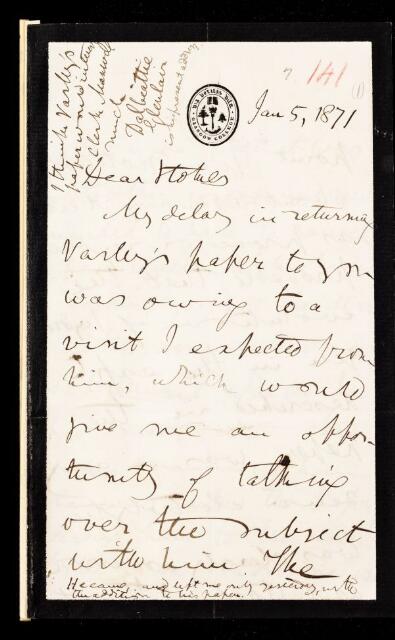 I think Varley's
paper would interest
Clerk Maxwell
much
Dalbeattie
Glenlair
is his present address
141
(1)
GLASGOW COLLEGE
Jan 5, 1871
Dear Stokes
My delay in returning
Varley's paper to you
was owing to a
visit I expected from
him, which would
give me an oppor-
tunity of talking
over the subject
with him The
He came, and left me only yesterday, with
the addition to his paper.